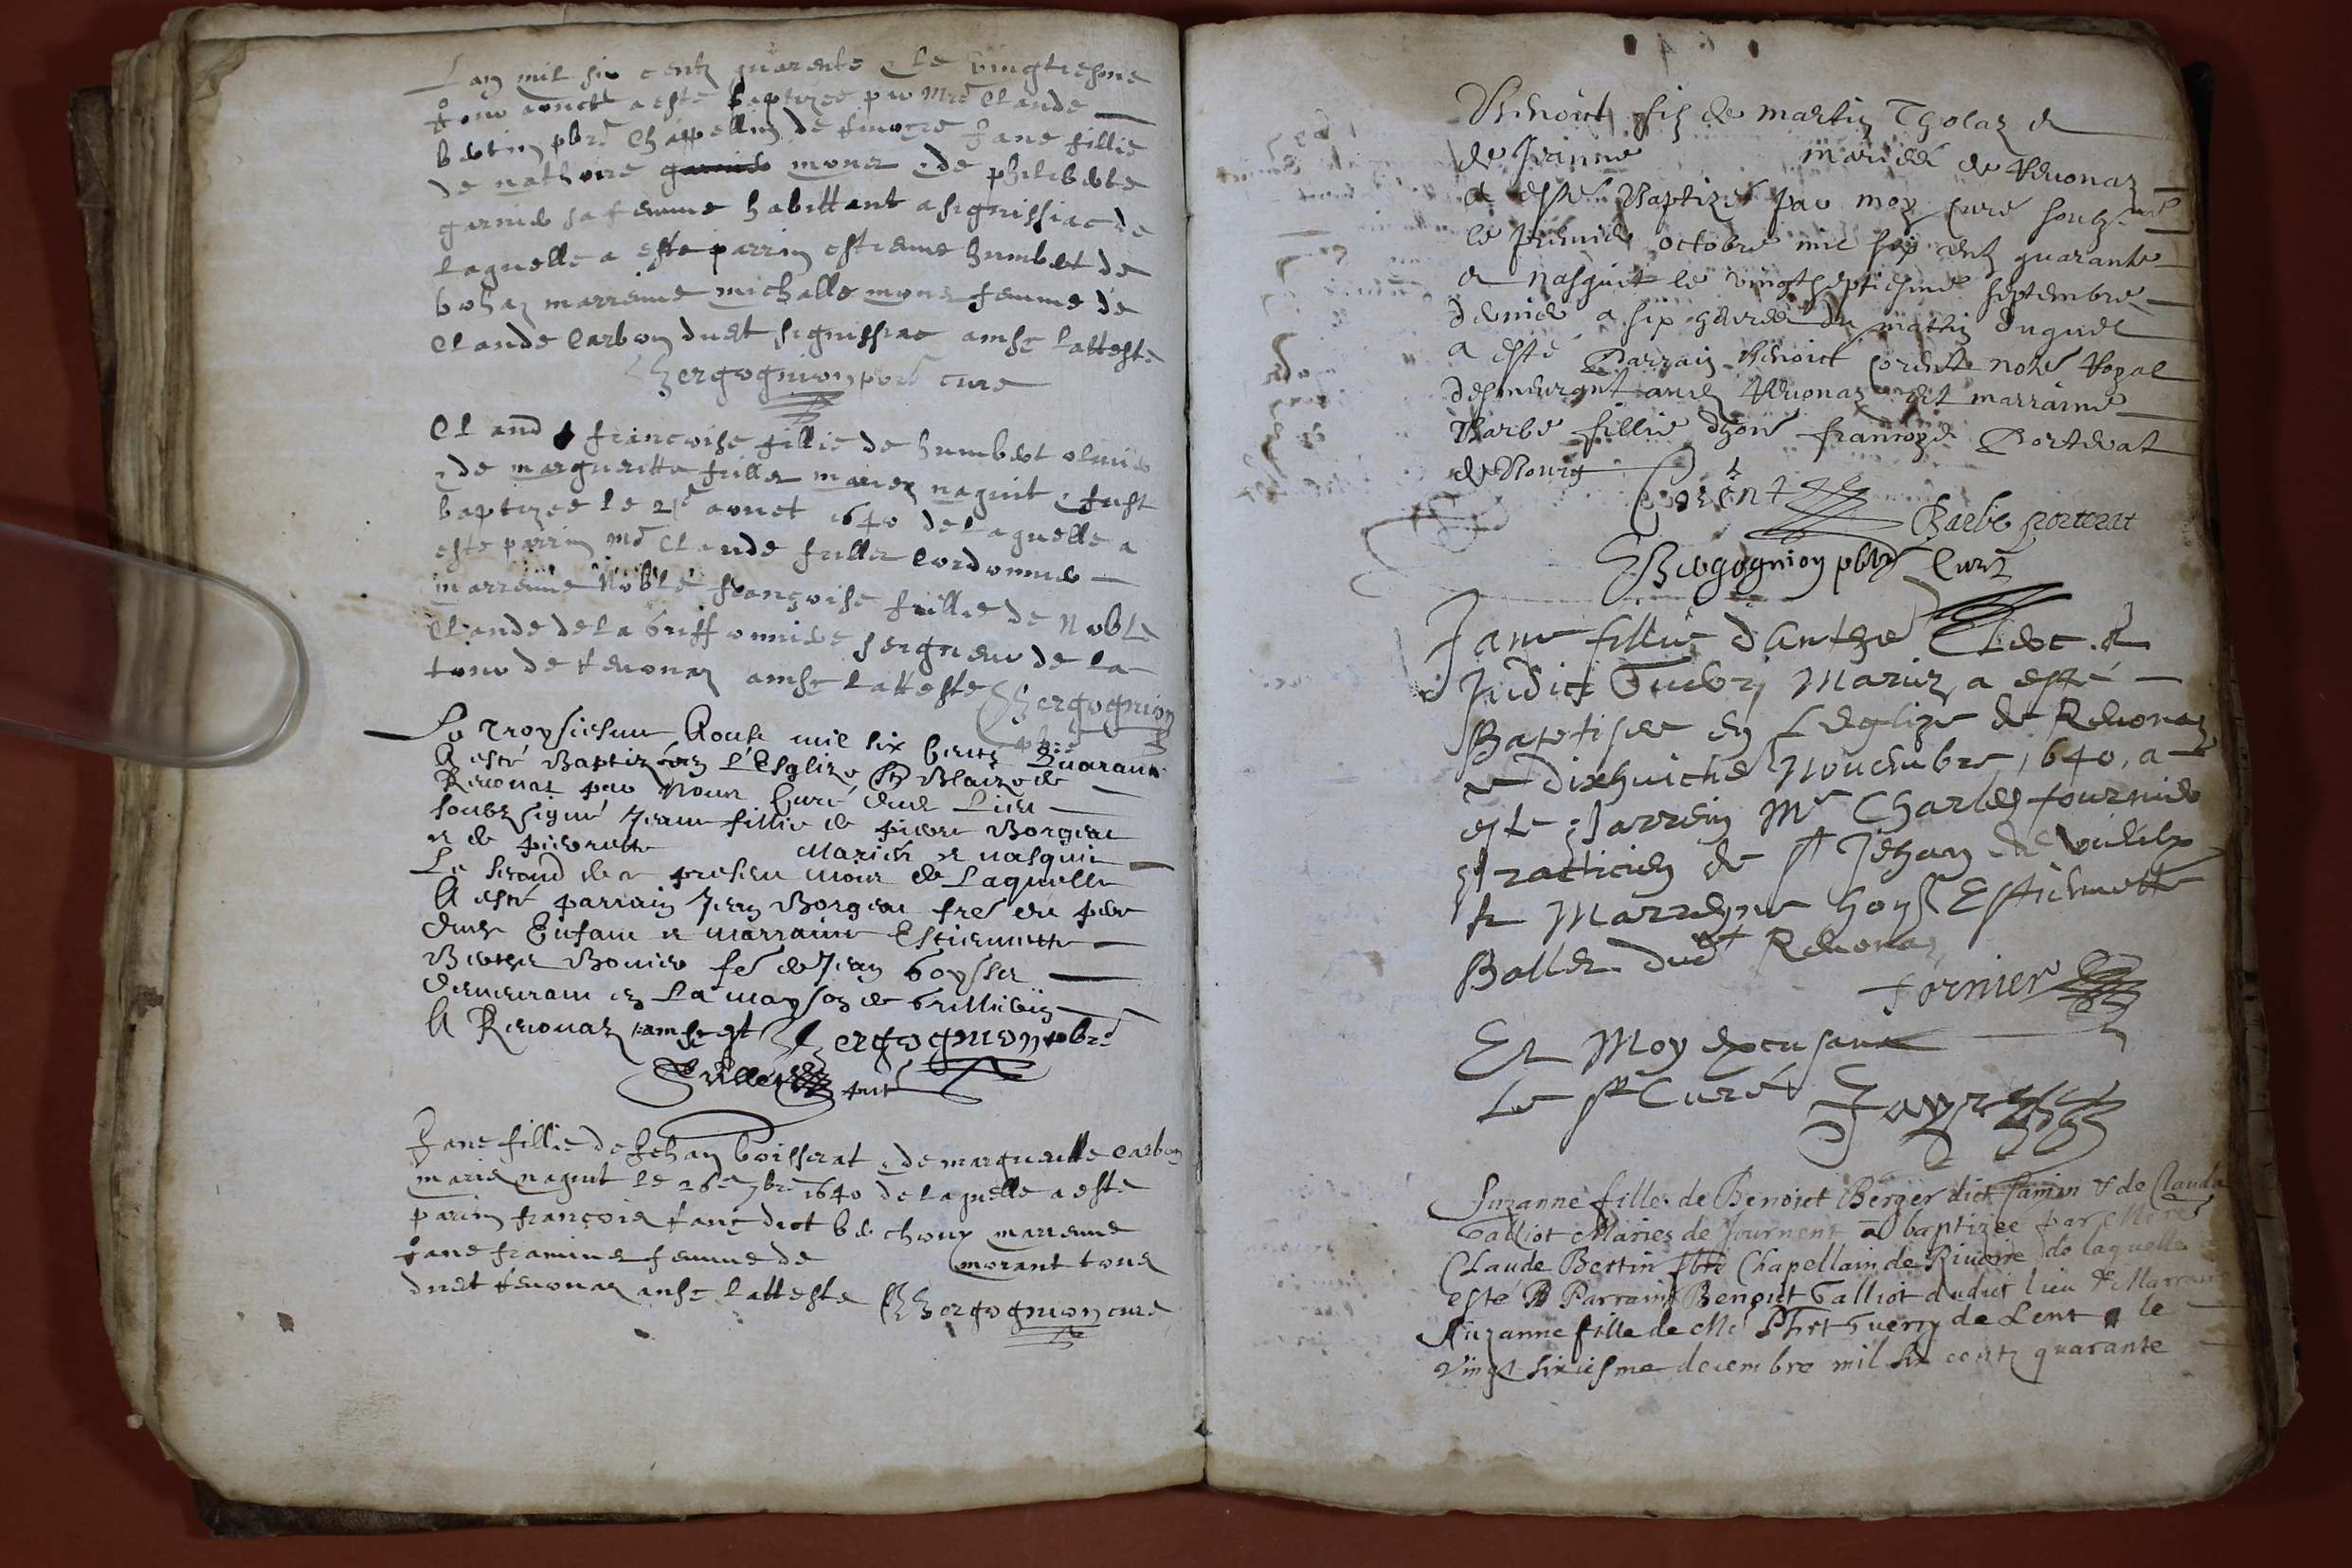 Lan mil six centz quarente & le vingtiesme
Jour aouct a este baptizee par Mre Claude
bertin pbre Chappellin de rivoere Jane fillie
de nathoire garnier monet & de philiberte
garnier sa femme habittant a signissiac de
laquelle a este parrin estienne humbert de
bohaz marrenne michalle monet femme de
Claude Carbon dudt signissiac ainse latteste
Bergognion pbre cure
Claud francoise fillie de humbert olivier
& de margueritte fuller mariez naquit & fust
baptizee le 21e aouct 1640 de laquelle a
este parrin me Claude fuller cordonnier
marrenne Noble françoise fillie de Noble
Claude de la Griffonniere seigneur de la
tour de revonaz ainse latteste Bergognion
Le Troysiesme Aoust mil six centz Quarante
A esté Baptizée en L'Esglize St Blaize de
Revonaz par Nous Curé dud Lieu
soubzsigné Jeanne fillie de pierre Borgeat
et de pierrette Mariés et nasquit
Le second de ce present mois de Laquelle
A esté parrain Jean Borgeat fre du pere
dud Enfant et marraine Estiennette
Bouvier fe de Jean Goyffet
demeurant en La mayson de
A Revonaz ainse est Bergognion pbre
Fuller pnt
Jane fillie de Jehan boisserat & de marguerite carbon
marie naquit le 26e 7bre 1640 de laquelle a este
parrin françois dict marrenne
Jane femme de morant tous
dudt revonaz ainse latteste Bergognion cure
Benoict filz de martin Tholaz &
de Jeanne mariés de Revonaz
a esté Baptizé par moy curé soubzné
le premier octobre mil six centz quarante
& nasquit le vingtseptiesme septembre
dernier a six heures du matin duquel
a esté Parrain Benoict Corent notre Royal
desmeurant aud Revonaz et marraine
Barbe fillie dhon françoys Porterat
de Bourg
Corent
Barbe porterat
Bergognion pbre Curé
Jane fillie d'Anthe Clerc &
Judict Tuebz Mariez a esté
Baptisee en L'eglize de Revonaz
ce dixhuictie Novembre 1640, a
este parrein Me Charles fournier
practicien de St Jehan de vieilx
& Marreyne hons Estiennette
Ballet dudt Revonaz
Fornier
Et Moy excusant
Le Sr Curé Jayr
Suzanne fille de Benoict Berger dict Jamin & de Clauda
Talliot Maries de Journent a baptizée par Mere
Claude Bertin pbre Chapellain de Rivoire de laquelle
esté Parrain Benoict Talliot dudict lieu & Marraine
Suzanne fille de Me Phet Guerry de Lent le
vingt sixiesme decembre mil six centz quarante